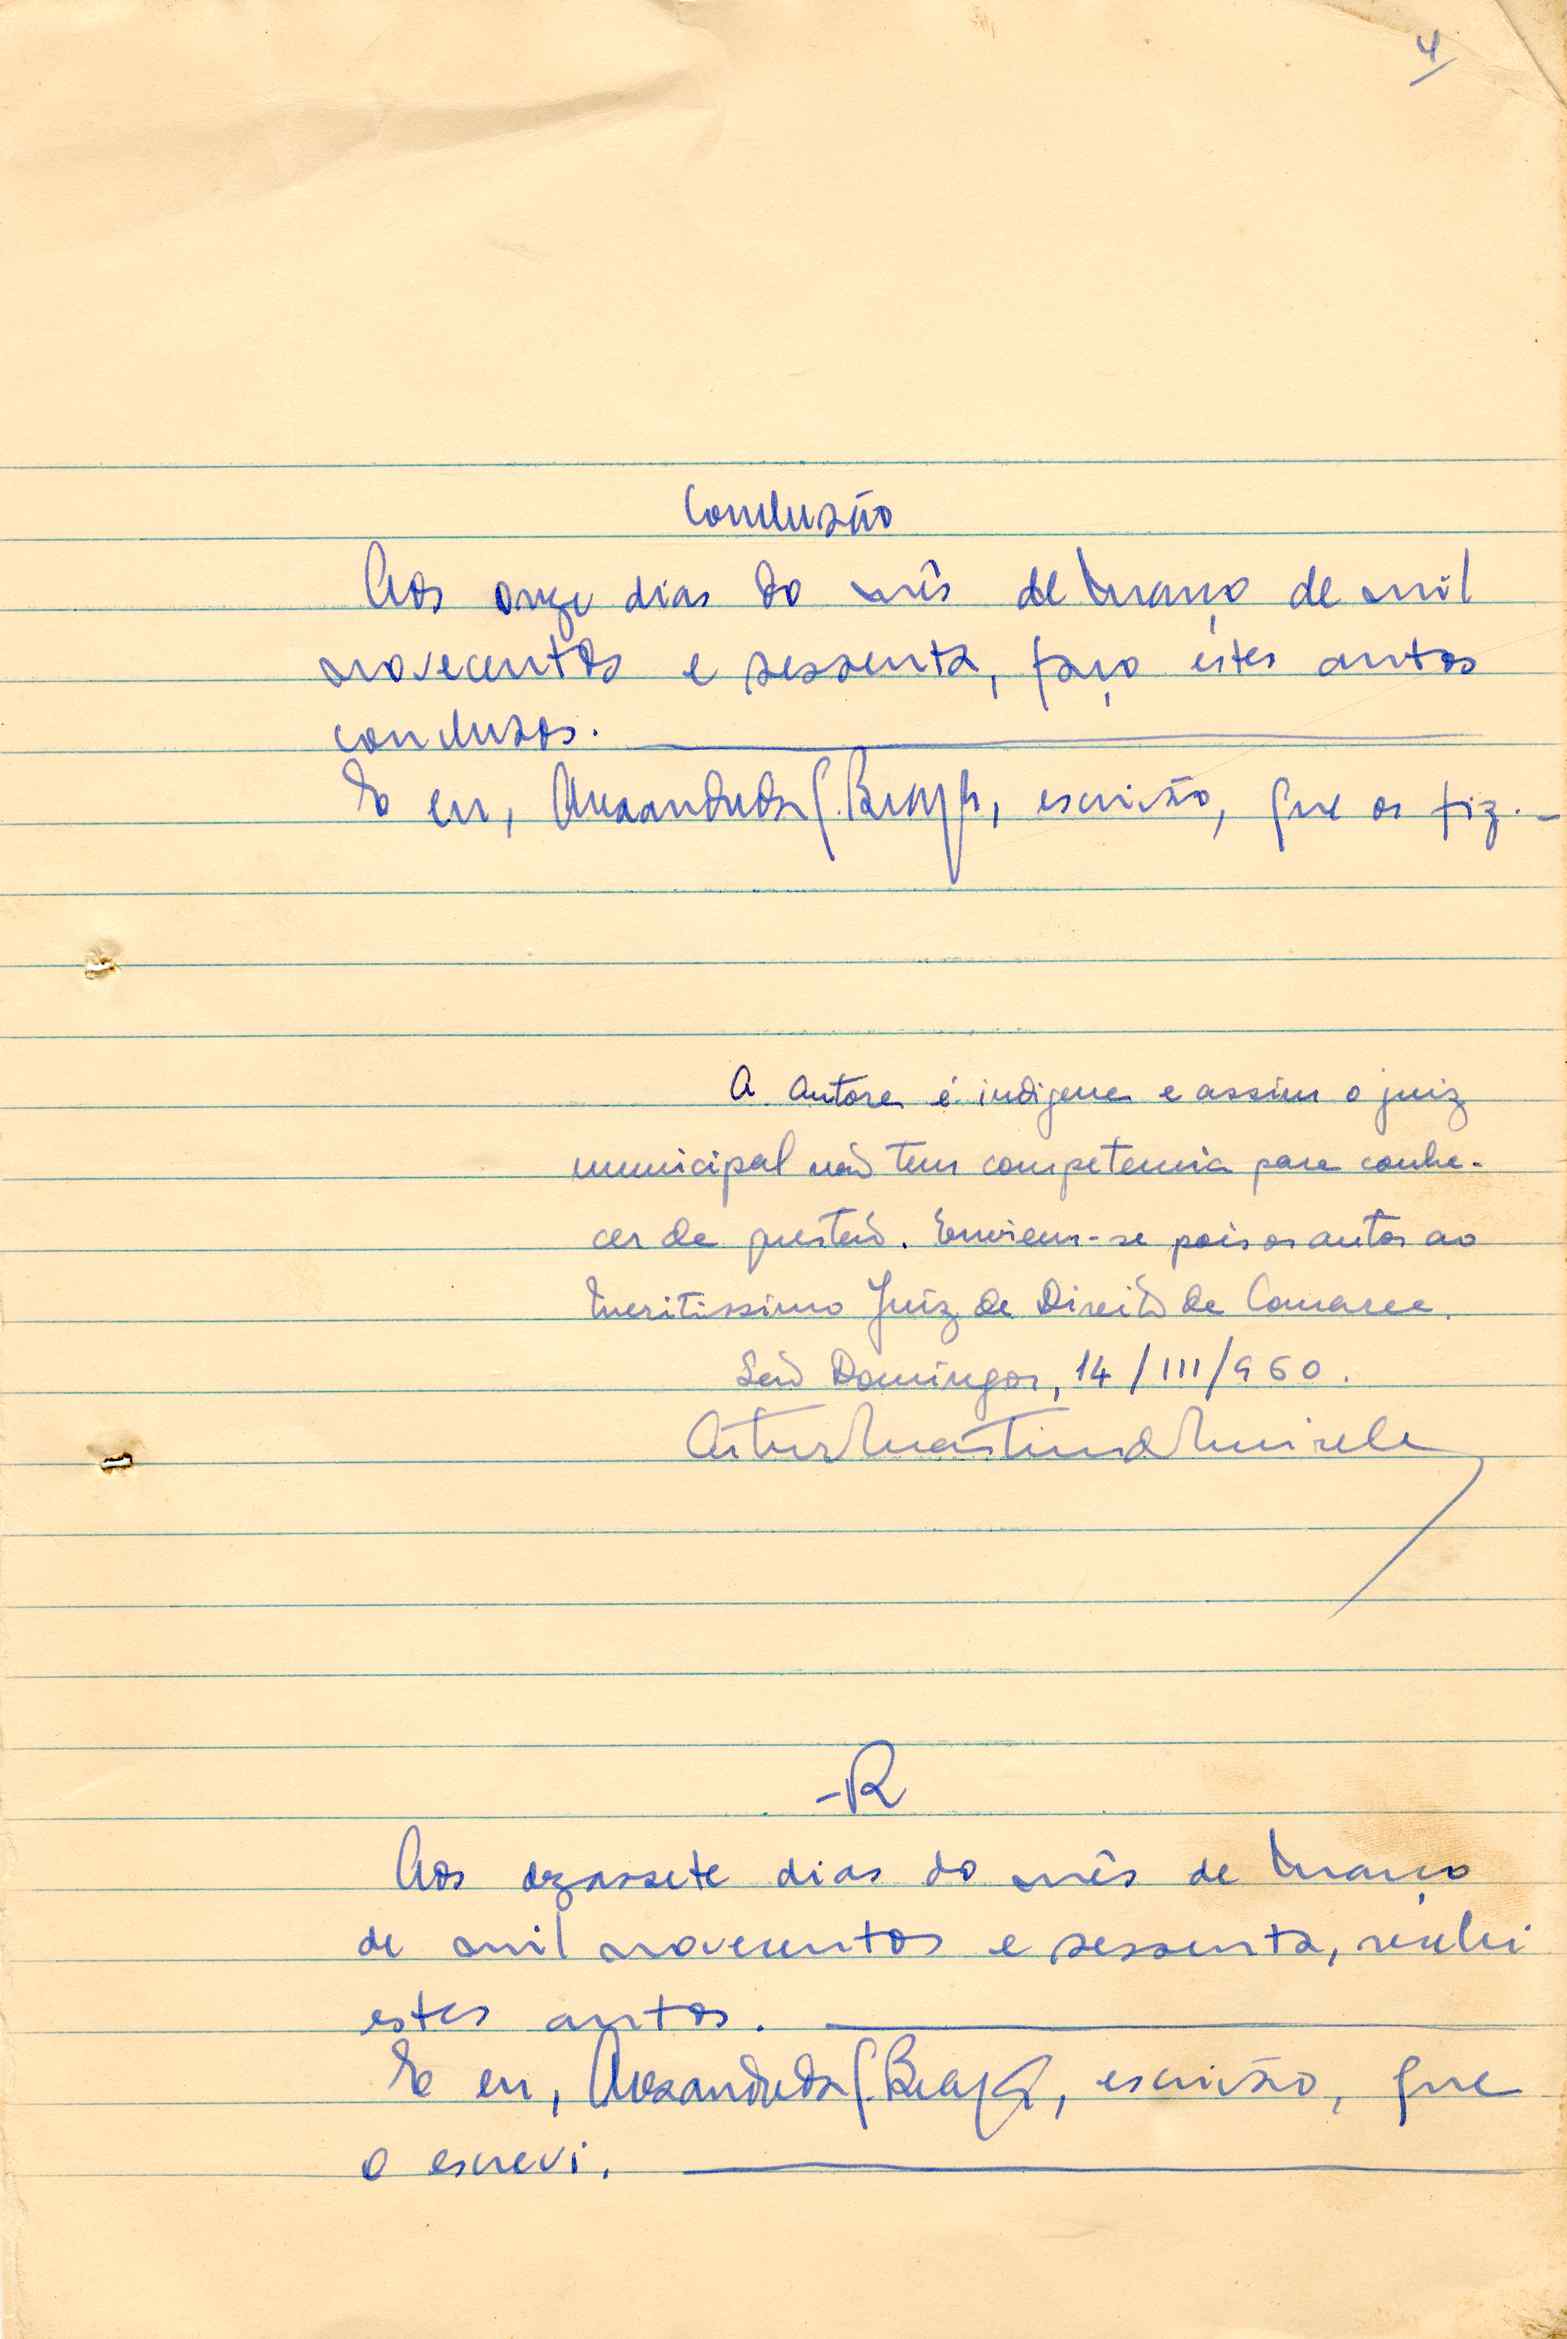 4
Conclusão
Aos onze dias do mês de Março de mil
novecentos e sessenta, faço estes autos
conclusos.
E eu, escrivão, que os fiz.-
A autora é indigena e assim o juiz
municipal não tem competencia para conhe-
cer da questão. Enviem-se pois os autos ao
Meritissimo Juiz de Direito da Comarca.
São Domingos, 14/III/960.
Artur Martins de Meireles
-R
Aos dezassete dias do mês de Março
de mil novecentos e sessenta, recebi
estes autos.
E eu, escrivão, que
o escrevi.